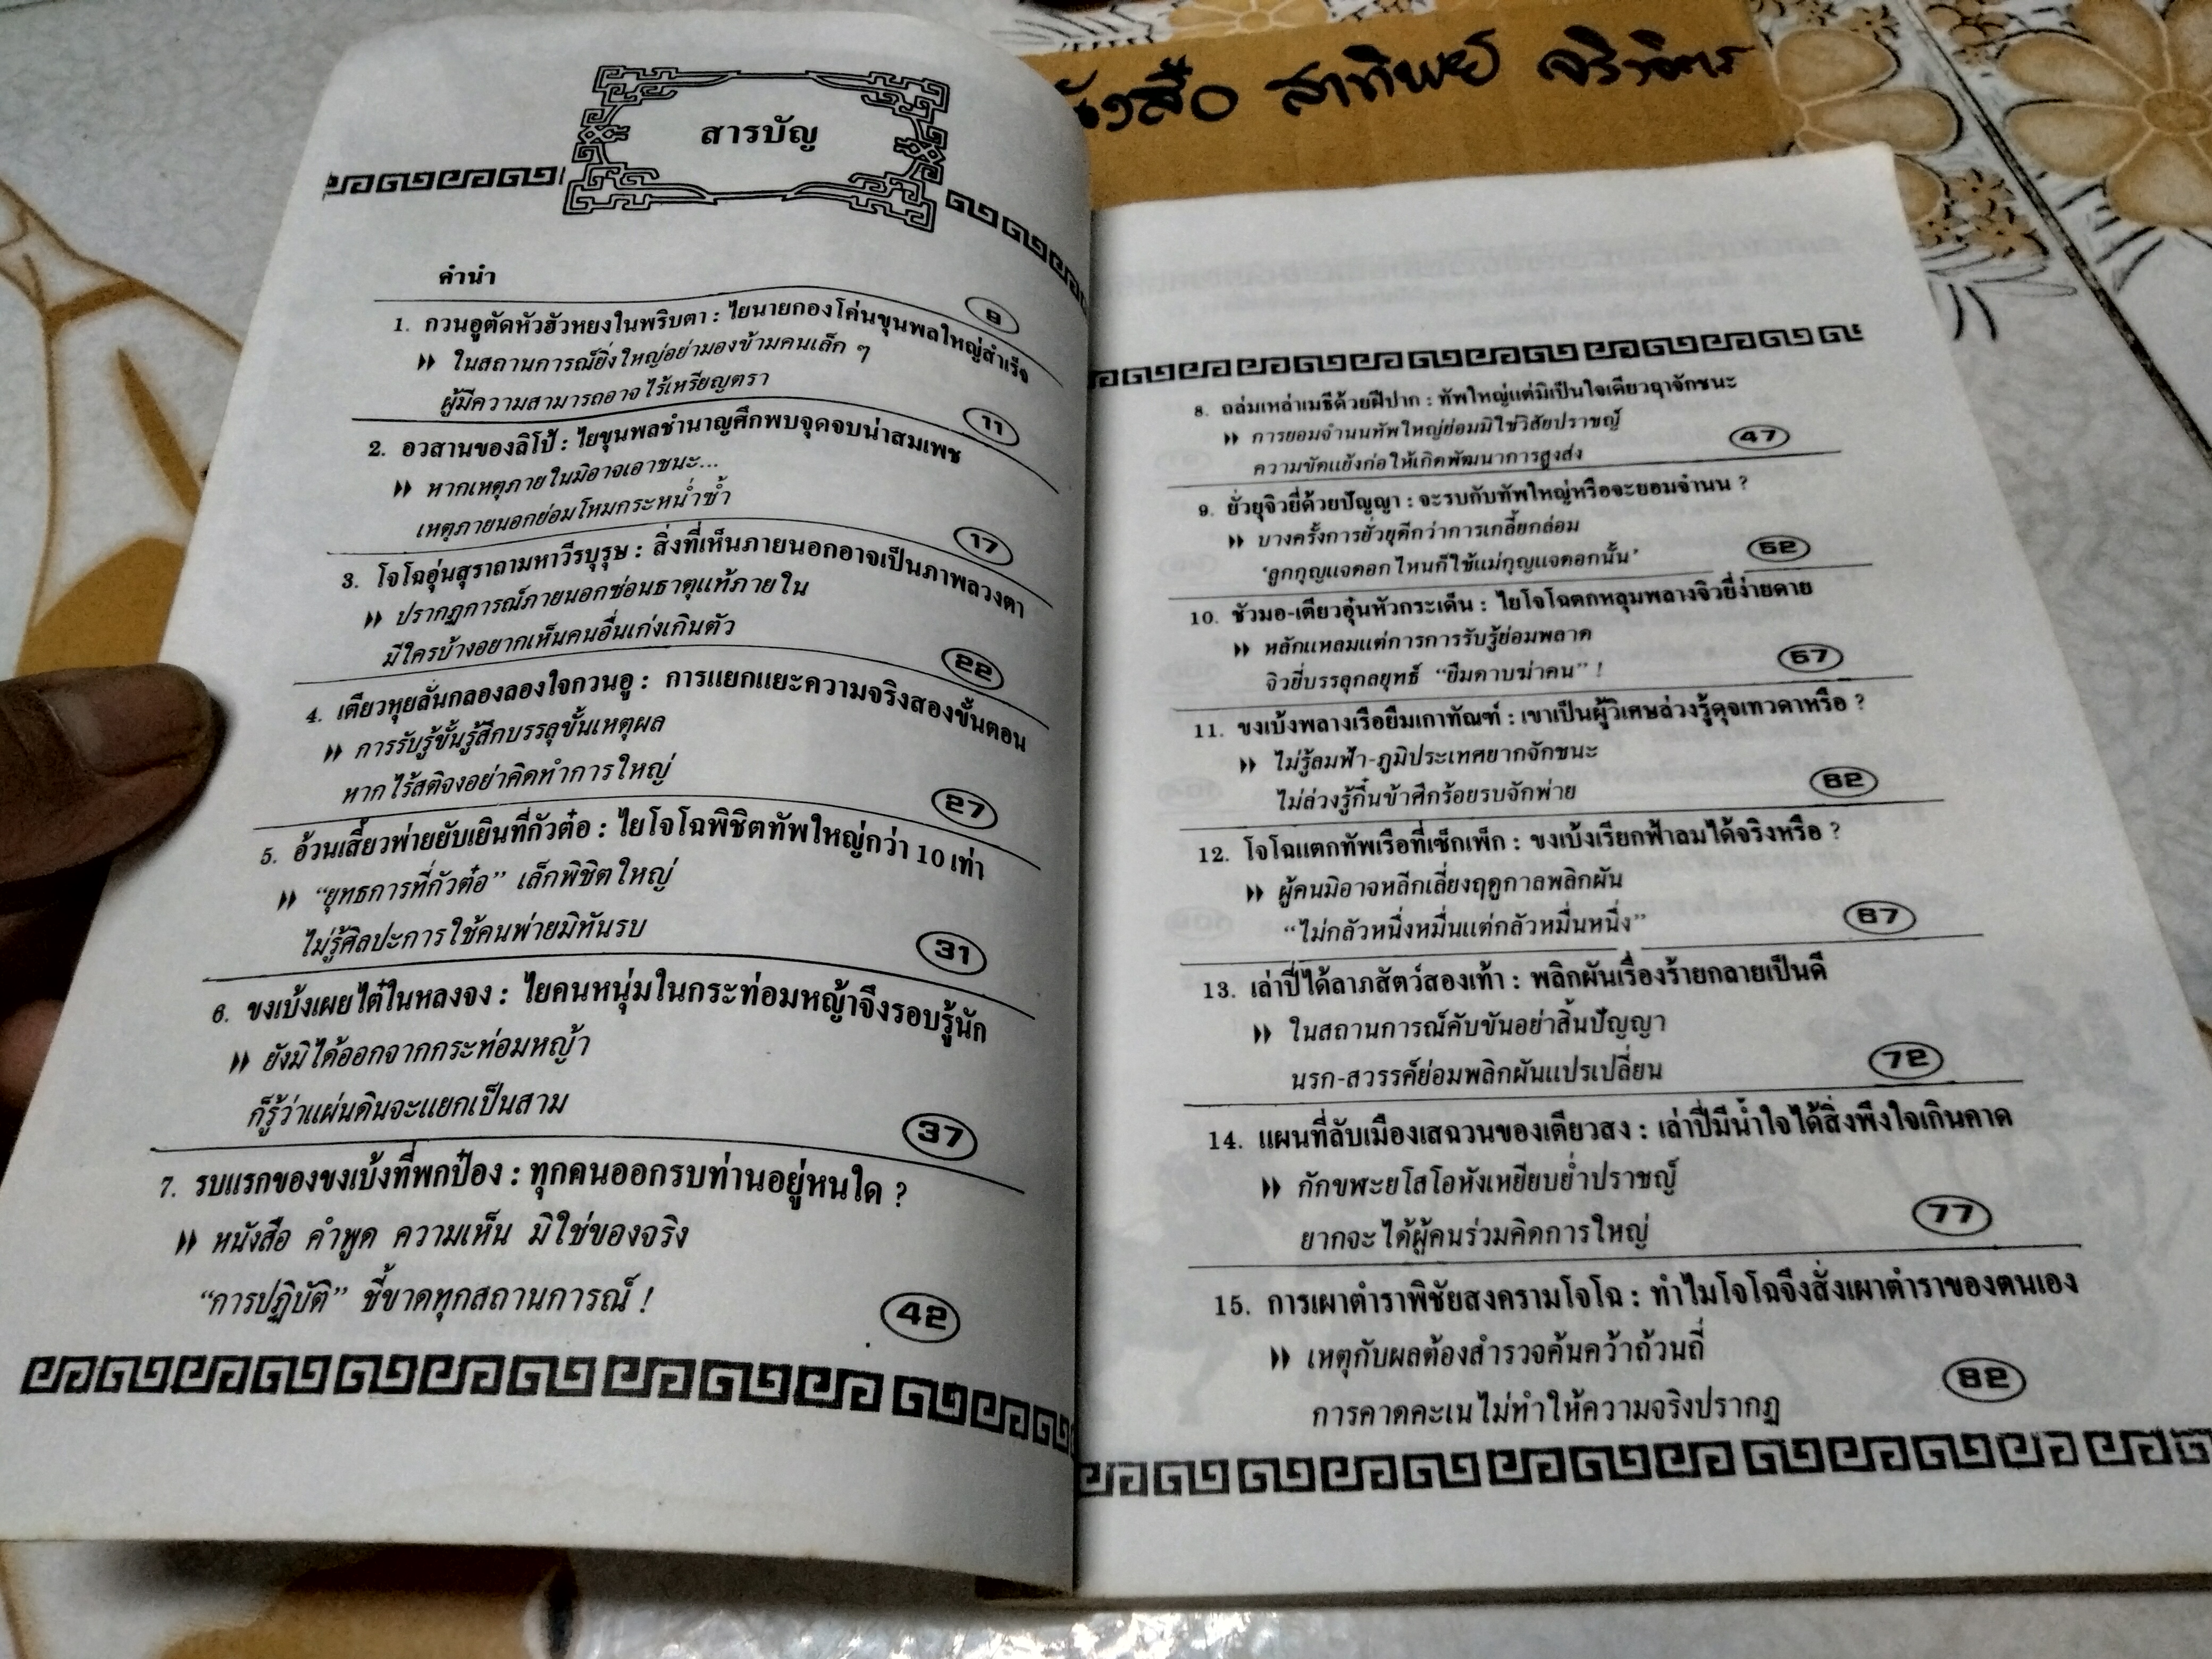 สารบัญ
คำนำ
8
1. กวนอูตัดหัวฮัวหยงในพริบตา : ไยนายกองโค่นขุนพลใหญ่สำเร็จ
ในสถานการณ์ยิ่งใหญ่อย่ามองข้ามคนเล็ก ๆ
ผู้มีความสามารถอาจไร้เหรียญตรา
11
2. อวสานของลิโป้ : ไยขุนพลชำนาญศึกพบจุดจบน่าสมเพช
หากเหตุภายในมิอาจเอาชนะ...
เหตุภายนอกย่อมโหมกระหน่ำซ้ำ
17
3. โจโฉอุ่นสุราถามหาวีรบุรุษ : สิ่งที่เห็นภายนอกอาจเป็นภาพลวงตา
ปรากฏการณ์ภายนอกซ่อนธาตุแท้ภายใน
มีใครบ้างอยากเห็นคนอื่นเก่งเกินตัว
22
4. เตียวหุยลั่นกลองลองใจกวนอู : การแยกแยะความจริงสองขั้นตอน
การรับรู้ขั้นรู้สึกบรรลุขั้นเหตุผล
หากไร้สติจงอย่าคิดทำการใหญ่
27
5. อ้วนเสี้ยวพ่ายยับเยินที่กัวต๋อ : ไยโจโฉพิชิตทัพใหญ่กว่า 10 เท่า
“ยุทธการที่กัวต๋อ” เล็กพิชิตใหญ่
ไม่รู้ศิลปะการใช้คนพ่ายมิทันรบ
31
6. ขงเบ้งเผยไต๋ในหลงจง : ไยคนหนุ่มในกระท่อมหญ้าจึงรอบรู้นัก
ยังมิได้ออกจากกระท่อมหญ้า
ก็รู้ว่าแผ่นดินจะแยกเป็นสาม
37
7. รบแรกของขงเบ้งที่พกป๋อง : ทุกคนออกรบท่านอยู่หนใด ?
หนังสือ คำพูด ความเห็น มิใช่ของจริง
“การปฏิบัติ” ชี้ขาดทุกสถานการณ์ !
42
สาทิพย์
8. ถล่มเหล่าเมธีด้วยฝีปาก : ทัพใหญ่แต่มิเป็นใจเดียวฤาจักชนะ
การยอมจำนนทัพใหญ่ย่อมมิใช่วิสัยปราชญ์
ความขัดแย้งก่อให้เกิดพัฒนาการสูงส่ง
47
9. ยั่วยุจิวยี่ด้วยปัญญา : จะรบกับทัพใหญ่หรือจะยอมจำนน ?
บางครั้งการยั่วยุดีกว่าการเกลี้ยกล่อม
‘ลูกกุญแจดอกไหนก็ใช้แม่กุญแจดอกนั้น’
52
10. ชัวมอ-เตียวอุ๋นหัวกระเด็น : ไยโจโฉตกหลุมพลางจิวยี่ง่ายดาย
หลักแหลมแต่การการรับรู้ย่อมพลาด
จิวยี่บรรลุกลยุทธ์ “ยืมดาบฆ่าคน” !
57
11. ขงเบ้งพลางเรือยืมเกาทัณฑ์ : เขาเป็นผู้วิเศษล่วงรู้ดุจเทวดาหรือ ?
ไม่รู้ลมฟ้า-ภูมิประเทศยากจักชนะ
ไม่ล่วงรู้กึ๋นข้าศึกร้อยรบจักพ่าย
62
12. โจโฉแตกทัพเรือที่เซ็กเพ็ก : ขงเบ้งเรียกฟ้าลมได้จริงหรือ ?
ผู้คนมิอาจหลีกเลี่ยงฤดูกาลพลิกผัน
“ไม่กลัวหนึ่งหมื่นแต่กลัวหมื่นหนึ่ง”
67
13. เล่าปี่ได้ลาภสัตว์สองเท้า : พลิกผันเรื่องร้ายกลายเป็นดี
ในสถานการณ์คับขันอย่าสิ้นปัญญา
นรก-สวรรค์ย่อมพลิกผันแปรเปลี่ยน
72
14. แผนที่ลับเมืองเสฉวนของเตียวสง : เล่าปี่มีน้ำใจได้สิ่งพึงใจเกินคาด
กักขฬะยโสโอหังเหยียบย่ำปราชญ์
ยากจะได้ผู้คนร่วมคิดการใหญ่
77
15. การเผาตำราพิชัยสงครามโจโฉ : ทำไมโจโฉจึงสั่งเผาตำราของตนเอง
เหตุกับผลต้องสำรวจค้นคว้าถ้วนถี่
การคาดคะเนไม่ทำให้ความจริงปรากฏ
82